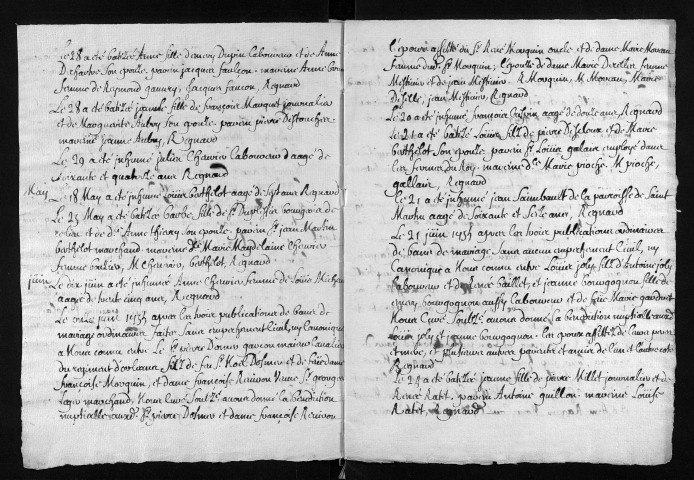 Le 28 a eté batisée Anne fille d'emery Dupin laboureur et de Anne
Dechartre son epouse parein jacques faulcon mareine Anne
femme de Reymond gaury, jacques faucon, Regnaud
Le 28 a eté batisée jeanne fille de françois Marquet journalier
et de Marguerite Aubry son epouse parein pierre destouches
mareine jeanne Aubry, Regnaud
Le 29 a eté inhumé julien Cheurier laboureur aagé de
soixante et quatorze ans Regnaud
May
Le 18 May a eté inhumé Louis berthelot aagé de sept ans Regnaud
Le 23 May a eté batisée barbe fille de Sr Duplessis bourgeois de
et de dle Anne thierry son epouse, parein Sr jean Martin
berthelot marchand mareine dlle Marie Magdelaine Cheurier
femme M Cheurier, berthelot, Regnaud
juin
Le dix juin a eté inhumée Anne Cheurier femme de Louis Micheau
aagée de vente cinq ans, Regnaud
Le onze juin 1735 apres les trois publications de bans de
mariage ordinaires faites sans empechement Ciuil, ny Canonique
a Nous connu entre Le Sr pierre Dosmer garçon majeur Caualier
du regiment d'orleans fils de feu Sr Noel Dosmer et de feue dame
françoise Morquin, et dame françoise Reniuou Veuue Sr georges
marchand, Nous Curé Soussé auons donné la benediction
nuptialle audt Sr pierre Dosmer et dame françoise Reniuou
l'epoux assisté du Sr René Morquin oncle et de dame Marie Moreau
femme dudt Sr Morquin, l'epouse de dame Marie femme
Messiuier et de jean Messiuier. R Morquin, M Moreau, Marie
jean Messiuier, Regnaud
Le 20 a eté inhumé françois aagé de douze ans, Regnaud
Le 21 a eté batisée Louise fille de pierre et de Marie
berthelot son epouse parein Sr Louis galais employé dans
les fermes du Roy, mareine dlle Marie pioche. M pioche,
gallais, Regnaud
Le 21 a eté inhumé jean Rimbault de la paroisse de Saint
Martin aagé de soixante et seize ans, Regnaud
Le 21 juin 1735 apres les trois publications ordinaires
de bans de mariage sans aucun empechement Ciuil, ny
Canonique a Nous connu entre Louis joly fils d'Antoine joly
laboureur et de Renée baillet, et jeanne bourgognon fille de
bourgognon aussy laboureur et de feue Marie
Nous Curé Soussé auons donné la benediction nuptialle audt
Louis joly et jeanne bourgognon. les epoux assistés de leur pere
et mere, et plusieurs autres parents et amis de l'un et l'autre coté
Regnaud
Le 24 a eté batisée jeanne fille de pierre Millet journalier et de
Renée Ratét, parein Antoine guillon mareine Louise
Ratét, Regnaud